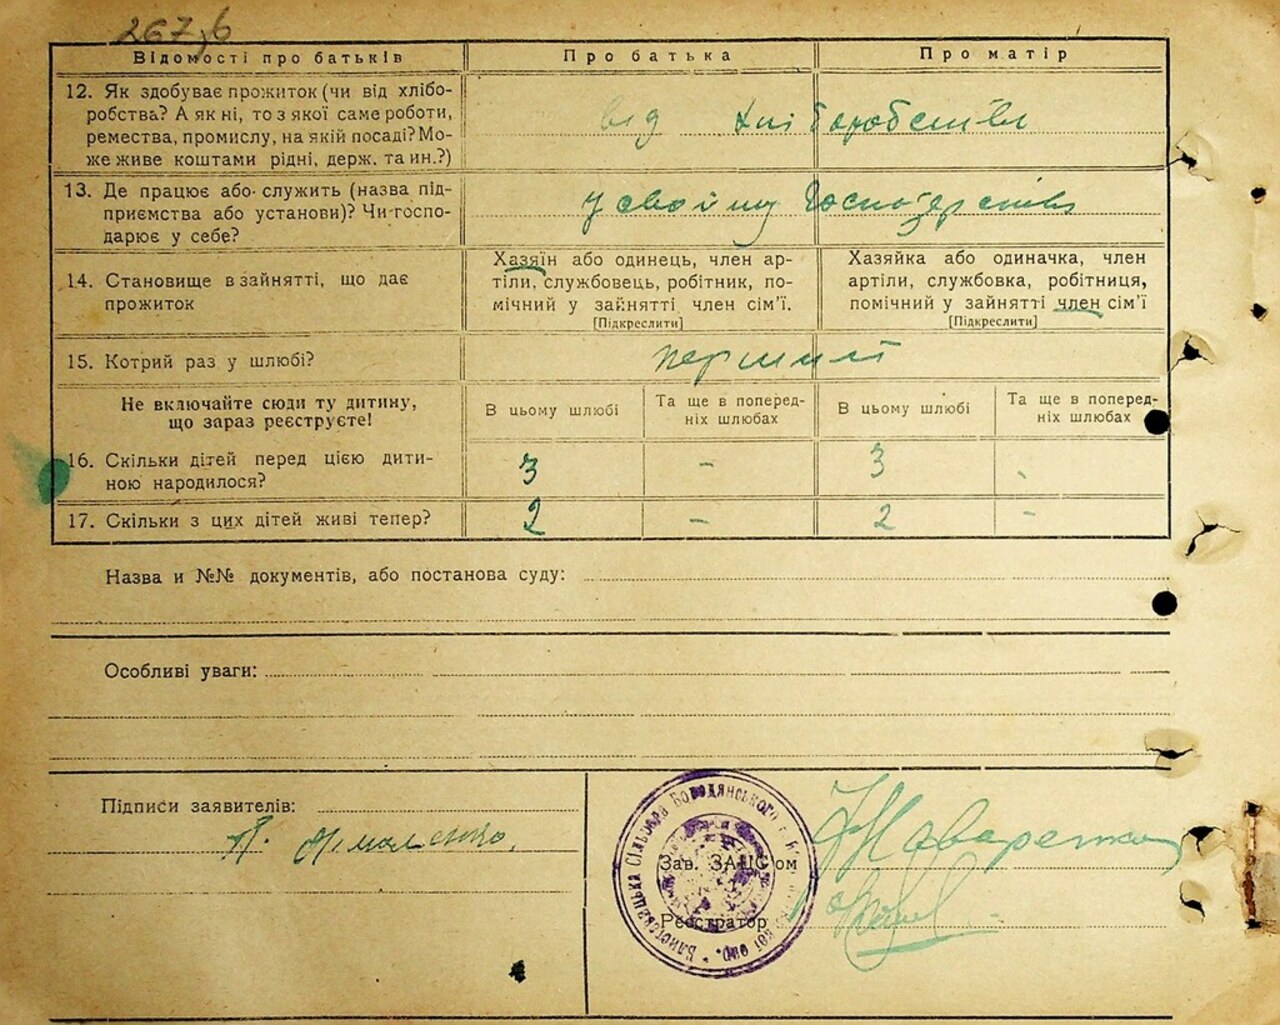 267зб
Відомості про батьків
Про батька
Про матір
12. Як здобуває прожиток (чи від хлібо-
робства? А як ні, то з якої саме роботи,
ремества, промислу, на якій посаді? Мо-
же живе коштами рідні, держ. та ин.?)
від хліборобства
13. Де працює або служить (назва під-
приємства або установи)? Чи госпо-
дарює у себе?
у своїму господарстві
14. Становище в зайнятті, що дає
прожиток
Хазяїн або одинець, член ар-
тіли, службовець, робітник, по-
мічний у зайнятті член сім'ї.
[Підкреслити]
Хазяйка або одиначка, член
артіли, службовка, робітниця,
помічний у зайнятті член сім'ї
[Підкреслити]
15. Котрий раз у шлюбі?
перший
Не включайте сюди ту дитину,
що зараз реєструєте!
В цьому шлюбі
Та ще в поперед-
ніх шлюбах
В цьому шлюбі
Та ще в поперед-
ніх шлюбах
16. Скільки дітей перед цією дити-
ною народилося?
3 - 3 -
17. Скільки з цих дітей живі тепер?
2 - 2 -
Назва и №№ документів, або постанова суду:
Особливі уваги:
Підписи заявителів:
Зав. ЗАЦС'ом
Реєстратор
Сільрада Бородянського